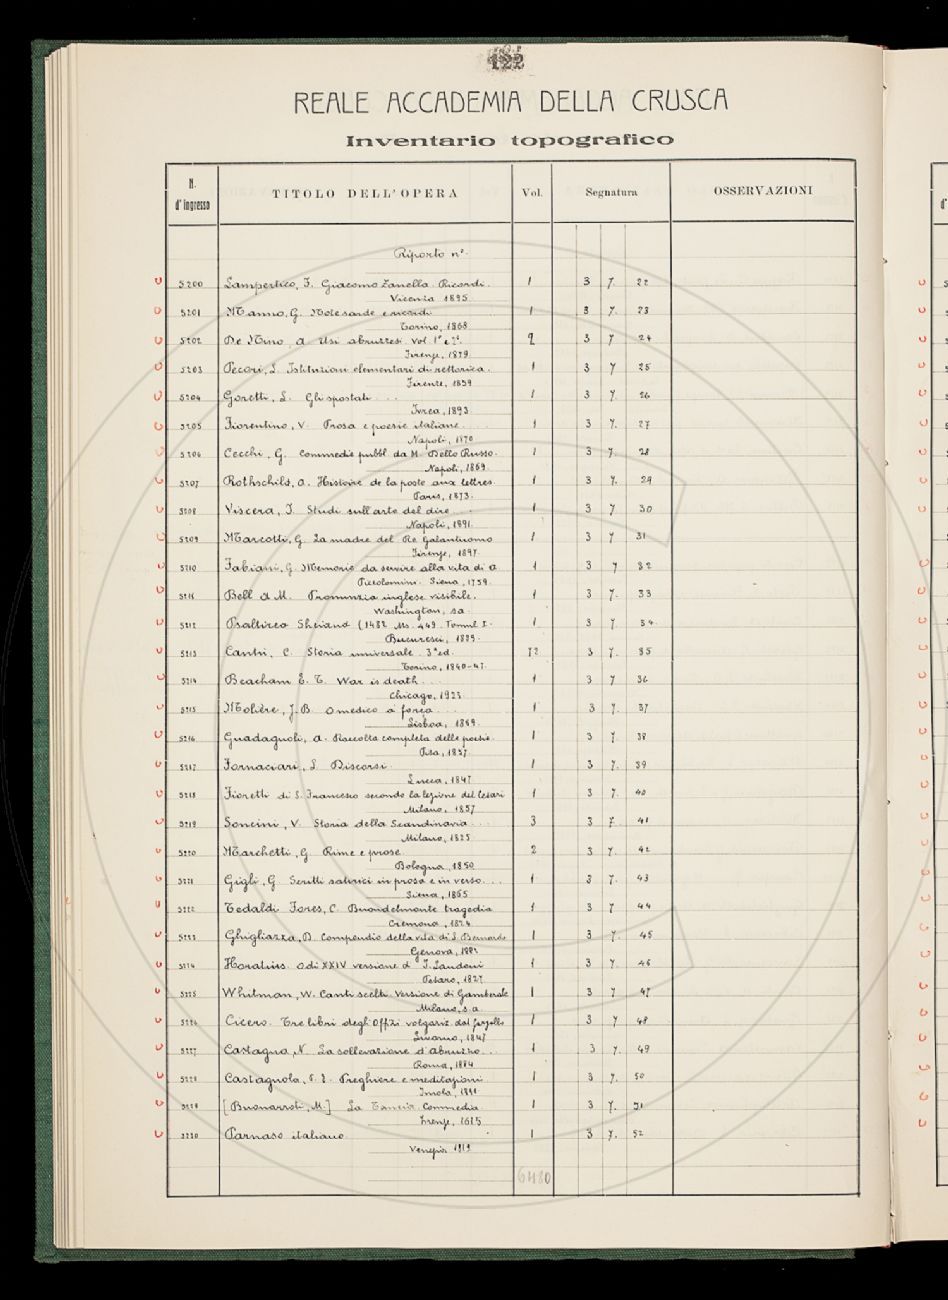 122
REALE ACCADEMIA DELLA CRUSCA
Inventario topografico
N. d'ingresso TITOLO DELL'OPERA Vol. Segnatura OSSERVAZIONI
Riporto n°.
5200 Lampertico, F. Giacomo Zanella. Ricordi. 1 3 7. 22
Vicenza 1895
5201 Manno, G. Note sarde e ricordi 1 3 7. 23
Torino, 1868
5202 De Nino, A. Usi abruzzesi Vol. 1° e 2°. 2 3 7 24
Firenze, 1879
5203 Pecori, L. Istituzioni elementari di rettorica. 1 3 7 25
Firenze, 1859
5204 Goretti, L. Gli spostati ... 1 3 7. 26
Ivrea, 1893
5205 Fiorentino, V. Prosa e poesie italiane 1 3 7. 27
Napoli, 1870
5206 Cecchi, G. Commedie pubbl da M. Dello Russo. 1 3 7. 28
Napoli, 1869.
5207 Rothschild, A. Histoire de la poste aux lettres 1 3 7. 29
Paris, 1873.
5208 Viscera, I. Studi sull'arte del dire ... 1 3 7 30
Napoli, 1891.
5209 Marcotti, G. La madre del Re galantuomo 1 3 7 31
Firenze, 1897.
5210 Fabiani, G. Memorie da servire alla vita di A. 1 3 7 32
Piccolomini. Siena, 1759.
5211 Bell A M. Pronunzia inglese visibile. 1 3 7. 33
Washington, sa.
5212 Psaltirea Scheiana (1482 Ms. 449. Tomul I. 1 3 7. 34.
Bucuresci, 1889.
5213 Cantù, C. Storia universale. 3ª ed. 72 3 7. 35
Torino, 1840-47.
5214 Beacham E. T. War is death ... 1 3 7 36
Chicago, 1923
5215 Molière, J.B. O medico à força ... 1 3 7. 37
Lisboa, 1869.
5216 Guadagnoli, A. Raccolta completa delle poesie. 1 3 7. 38
Pisa, 1857
5217 Fornaciari, L. Discorsi. 1 3 7. 39
Lucca, 1847
5218 Fioretti di S. Francesco secondo la lezione del Cesari 1 3 7. 40
Milano, 1857
5219 Soncini, V. Storia della Scandinavia ... 3 3 7. 41
Milano, 1825
5220 Marchetti, G. Rime e prose. 2 3 7. 42
Bologna, 1850
5221 Gigli, G. Scritti satirici in prosa e in verso ... 1 3 7. 43
Siena, 1865
5222 Tedaldi Fores, C. Buondelmonte tragedia 1 3 7 44
Cremona, 1824
5223 Ghigliazza, B. Compendio della vita di S. Bernardo 1 3 7. 45
Genova,
5224 Horatius. Odi XXIV versione di T. Landoni 1 3 7. 46
Pesaro, 1827
5225 Whitman, W. Canti scelti. Versione di Gamberale 1 3 7 47
Milano, s.a.
5226 Cicero. Tre libri degli Offizi volgariz. dal 1 3 7 48
Livorno, 1847
5227 Castagna, N. La sollevazione d'Abruzzo ... 1 3 7. 49
Roma, 1884
5228 Castagnola, Preghiere e meditazioni 1 3 7. 50
Imola,
5229 [Buonarroti, M.] La Tancia. Commedia 1 3 7. 51
Firenze, 1615
5230 Parnaso italiano 1 3 7. 52
Venezia 1819
6480